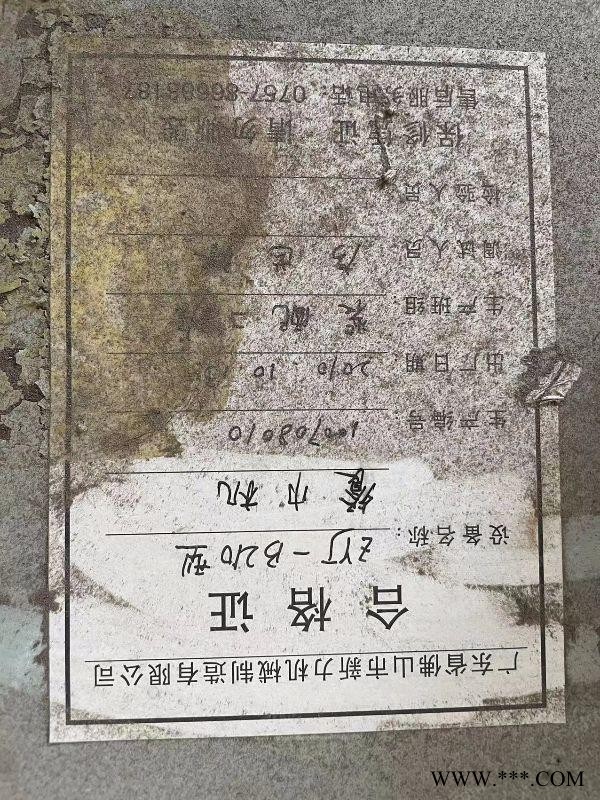 广东省佛山市新力机械制造有限公司
合格证
设备名称: ZYJ-B210型
餐巾机
生产编号: 100708010
出厂日期: 2010.10.
生产班组: 装配
调试人员:
检验人员:
保修凭证 请勿
售后服务电话:
WWW.***.COM